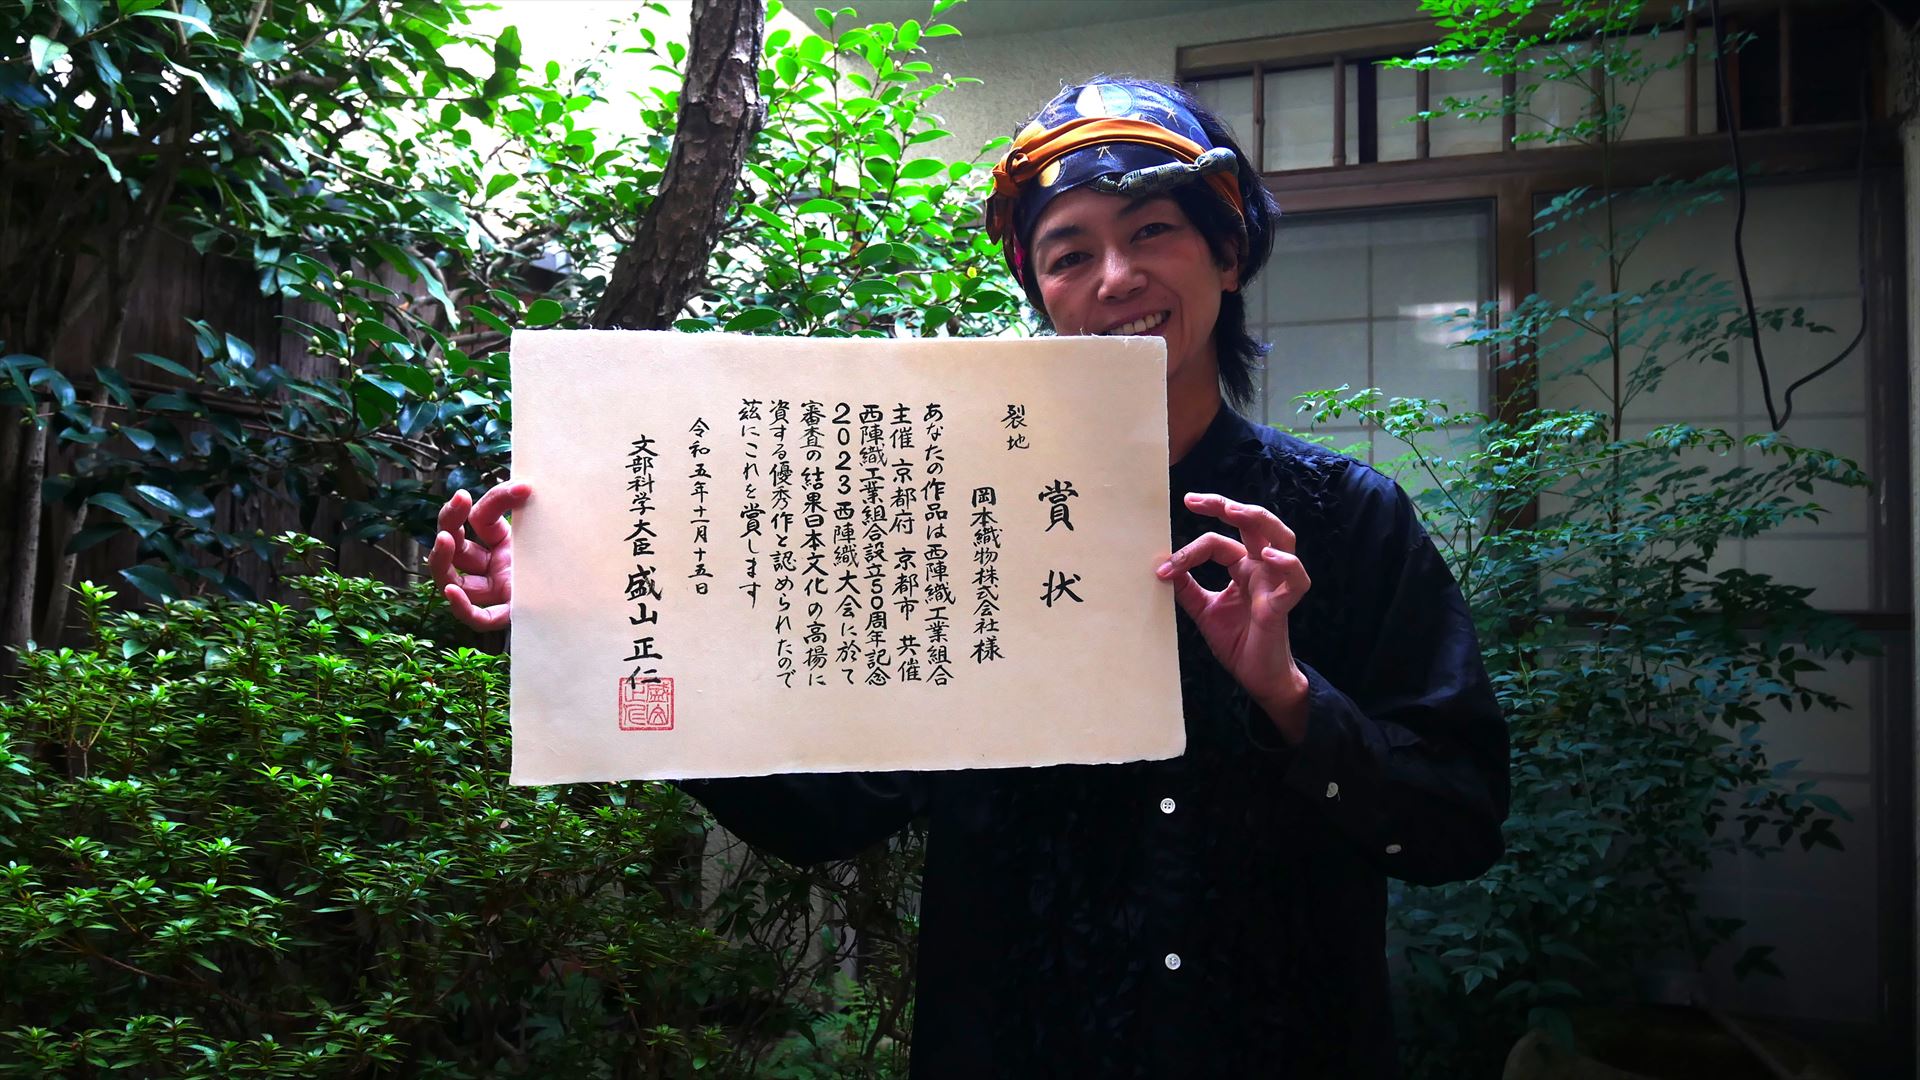 賞状
裂地
岡本織物株式会社様
あなたの作品は西陣織工業組合
主催 京都府 京都市 共催
西陣織工業組合設立50周年記念
2023西陣織大会に於て
審査の結果日本文化の高揚に
資する優秀作と認められたので
茲にこれを賞します
令和五年十一月十五日
文部科学大臣 盛山正仁
盛山正仁